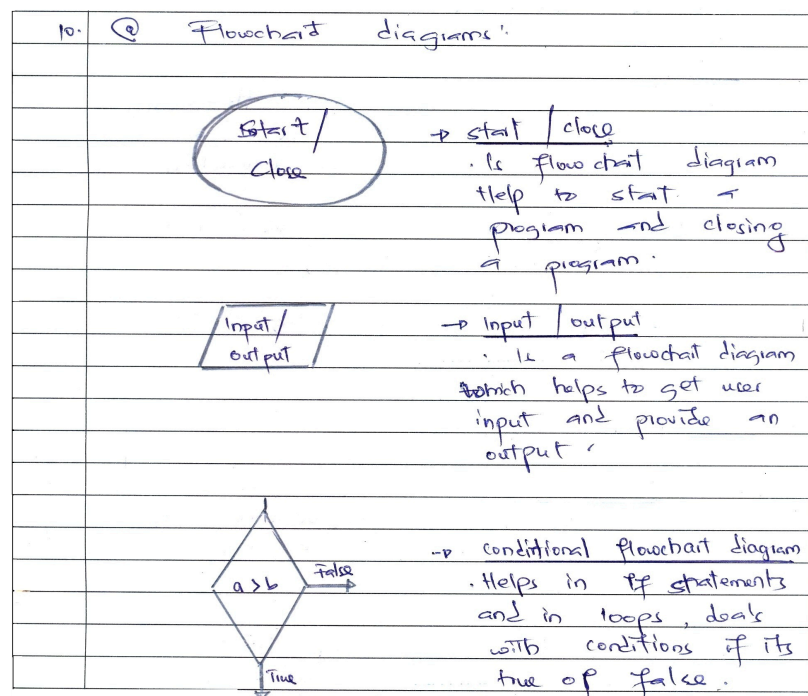 10. (a) Flowchart diagrams:
Start/
Close
→ start / close
. Is flow chart diagram
Help to start a
program and closing
a program.
Input/
output
→ Input / output
. Is a flowchart diagram
which helps to get user
input and provide an
output.
a > b
False
True
→ conditional flowchart diagram
. Helps in If statements
and in loops, deals
with conditions if its
true of false.